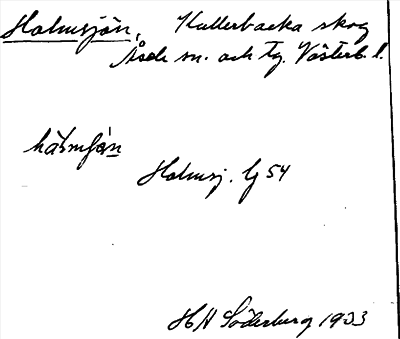 Holmsjön, Kullerbacka skog
Åsele sn. och tg. Västerb. l.
Holmsj. Lg 54
HH Söderberg 1933